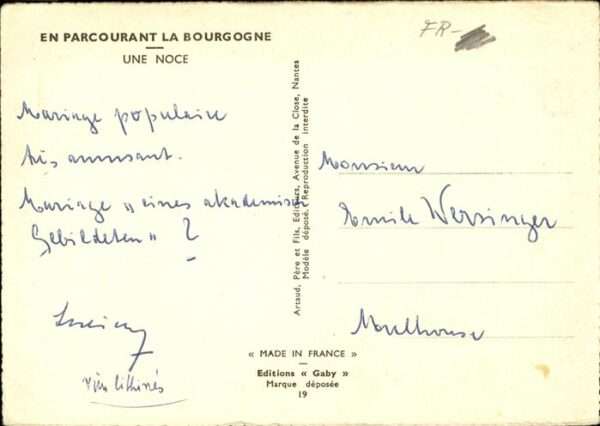 EN PARCOURANT LA BOURGOGNE
UNE NOCE
FR-
Mariage populaire
très amusant.
Mariage „ eines akademisch
Gebildeten " ?
Artaud, Père et Fils, Editeurs, Avenue de la Close, Nantes
Modèle déposé, Reproduction interdite
Monsieur
Emile Wersinger
Mulhouse
« MADE IN FRANCE »
Editions « Gaby »
Marque déposée
19